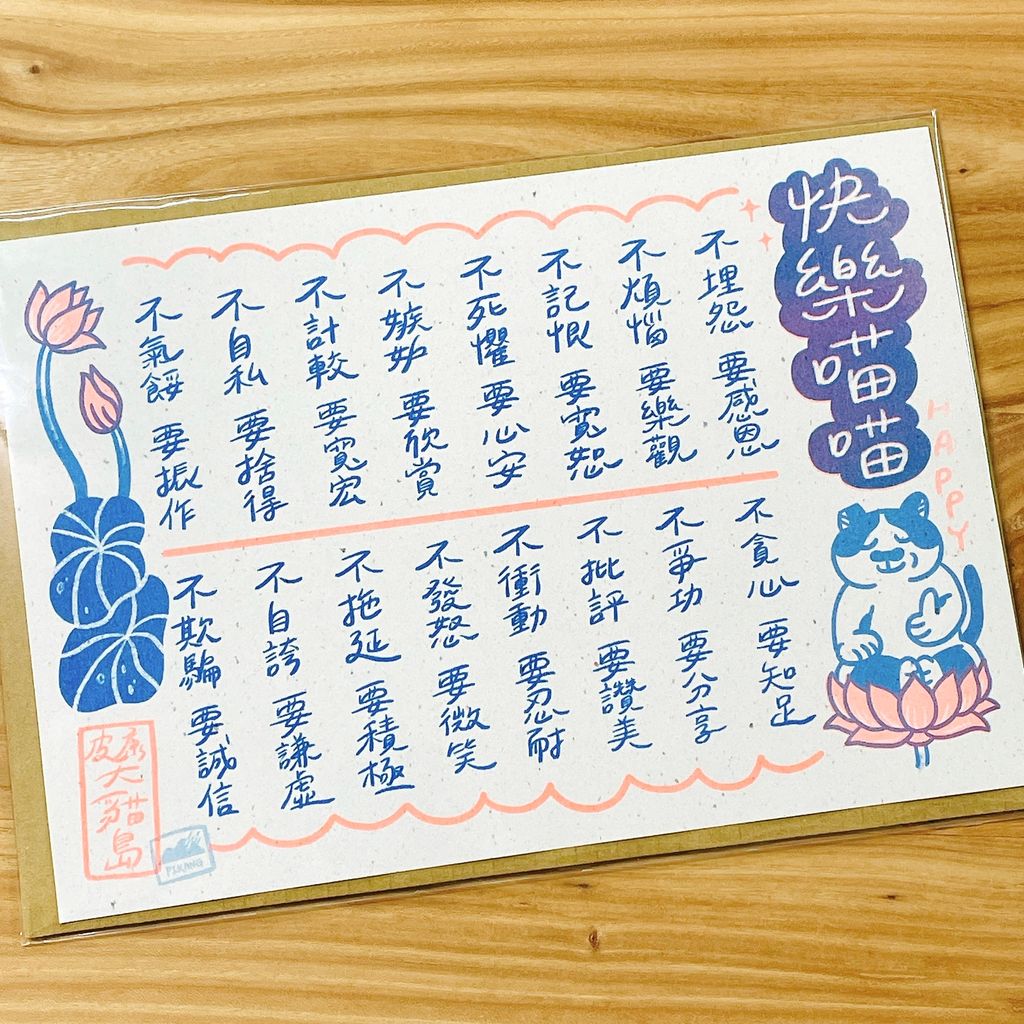 快樂喵喵
HAPPY
不埋怨 要感恩
不煩惱 要樂觀
不記恨 要寬恕
不死懼 要心安
不嫉妒 要欣賞
不計較 要寬宏
不自私 要捨得
不氣餒 要振作
不貪心 要知足
不爭功 要分享
不批評 要讚美
不衝動 要忍耐
不發怒 要微笑
不拖延 要積極
不自誇 要謙虛
不欺騙 要誠信
皮康
大貓島
PIKANG